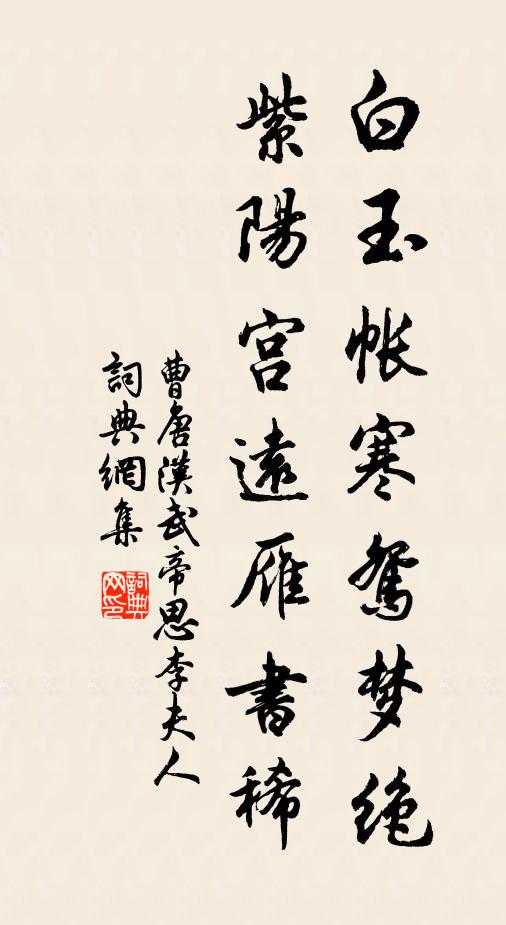 白玉帐寒鸳梦绝
紫陽宫遠雁書稀
曹唐漢武帝思李夫人
詞典網集
詞典网印